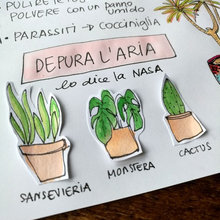 POLVERE CON un panno
umido
. PARASSITI → COCCINIGLIA
DEPURA L'ARIA
lo dice la NASA
SANSEVIERIA
MONSTERA
CACTUS